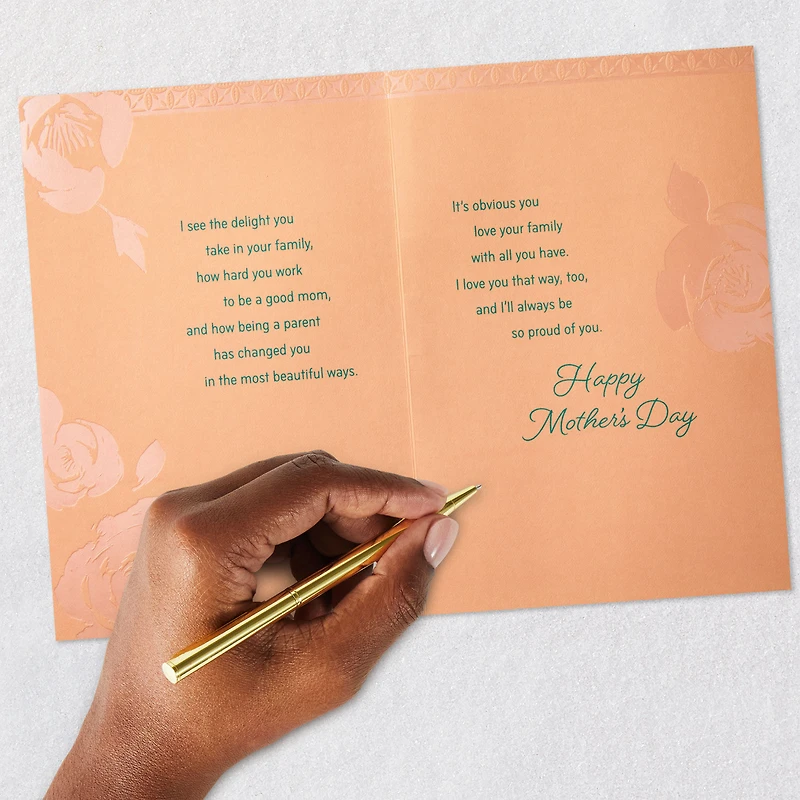 I see the delight you
take in your family,
how hard you work
to be a good mom,
and how being a parent
has changed you
in the most beautiful ways.
It's obvious you
love your family
with all you have.
I love you that way, too,
and I'll always be
so proud of you.
Happy
Mother's Day